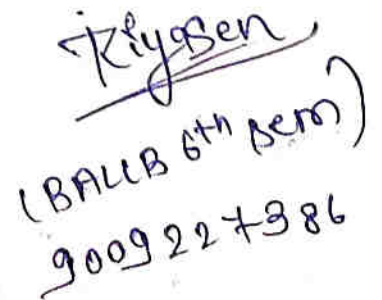 Riyasen
(BALLB 6th sem)
9009227386